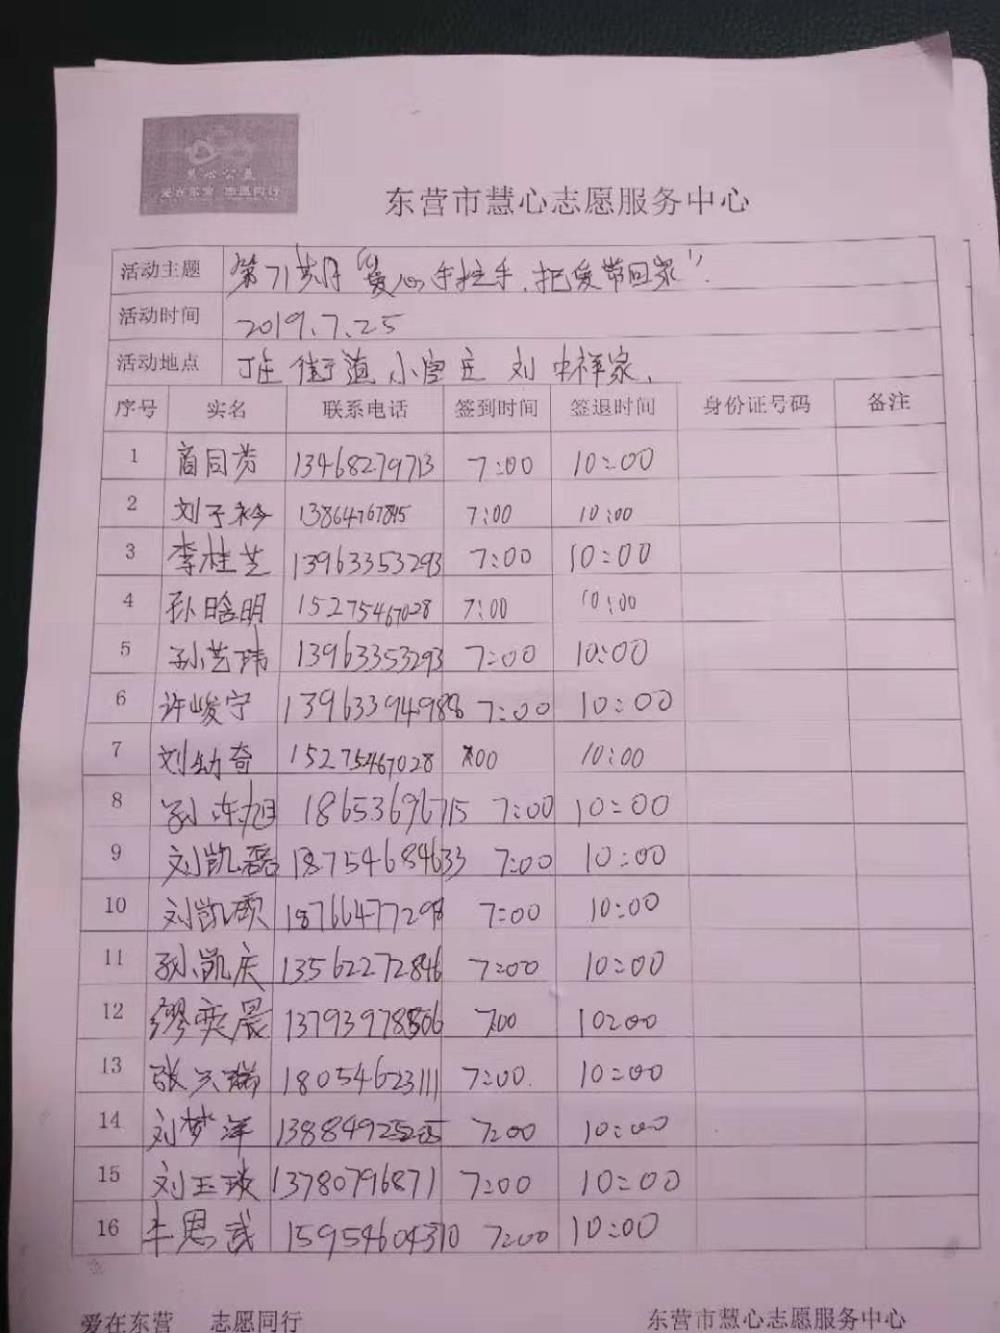 慧心公益
爱在东营 志愿同行
东营市慧心志愿服务中心
活动主题 第71岁月“爱心手拉手,把爱带回家”.
活动时间 2019.7.25
活动地点 丁庄街道小唐庄 刘中祥家.
序号 实名 联系电话 签到时间 签退时间 身份证号码 备注
1 商同芳 13468279713 7:00 10:00
2 刘子衿 13864767845 7:00 10:00
3 李桂芝 13963353293 7:00 10:00
4 孙晗明 15275467028 7:00 10:00
5 孙艺玮 13963353293 7:00 10:00
6 许峻宁 13963394988 7:00 10:00
7 刘幼奇 15275467028 7:00 10:00
8 孙东旭 18653696715 7:00 10:00
9 刘凯磊 18754684633 7:00 10:00
10 刘凯硕 18766477298 7:00 10:00
11 孙凯庆 13562272846 7:00 10:00
12 缪奕晨 13793978806 7:00 10:00
13 张兴瑞 18054623111 7:00 10:00
14 刘梦洋 7:00 10:00
15 刘玉琰 13780796871 7:00 10:00
16 牛恩武 15954604310 7:00 10:00
爱在东营 志愿同行 东营市慧心志愿服务中心